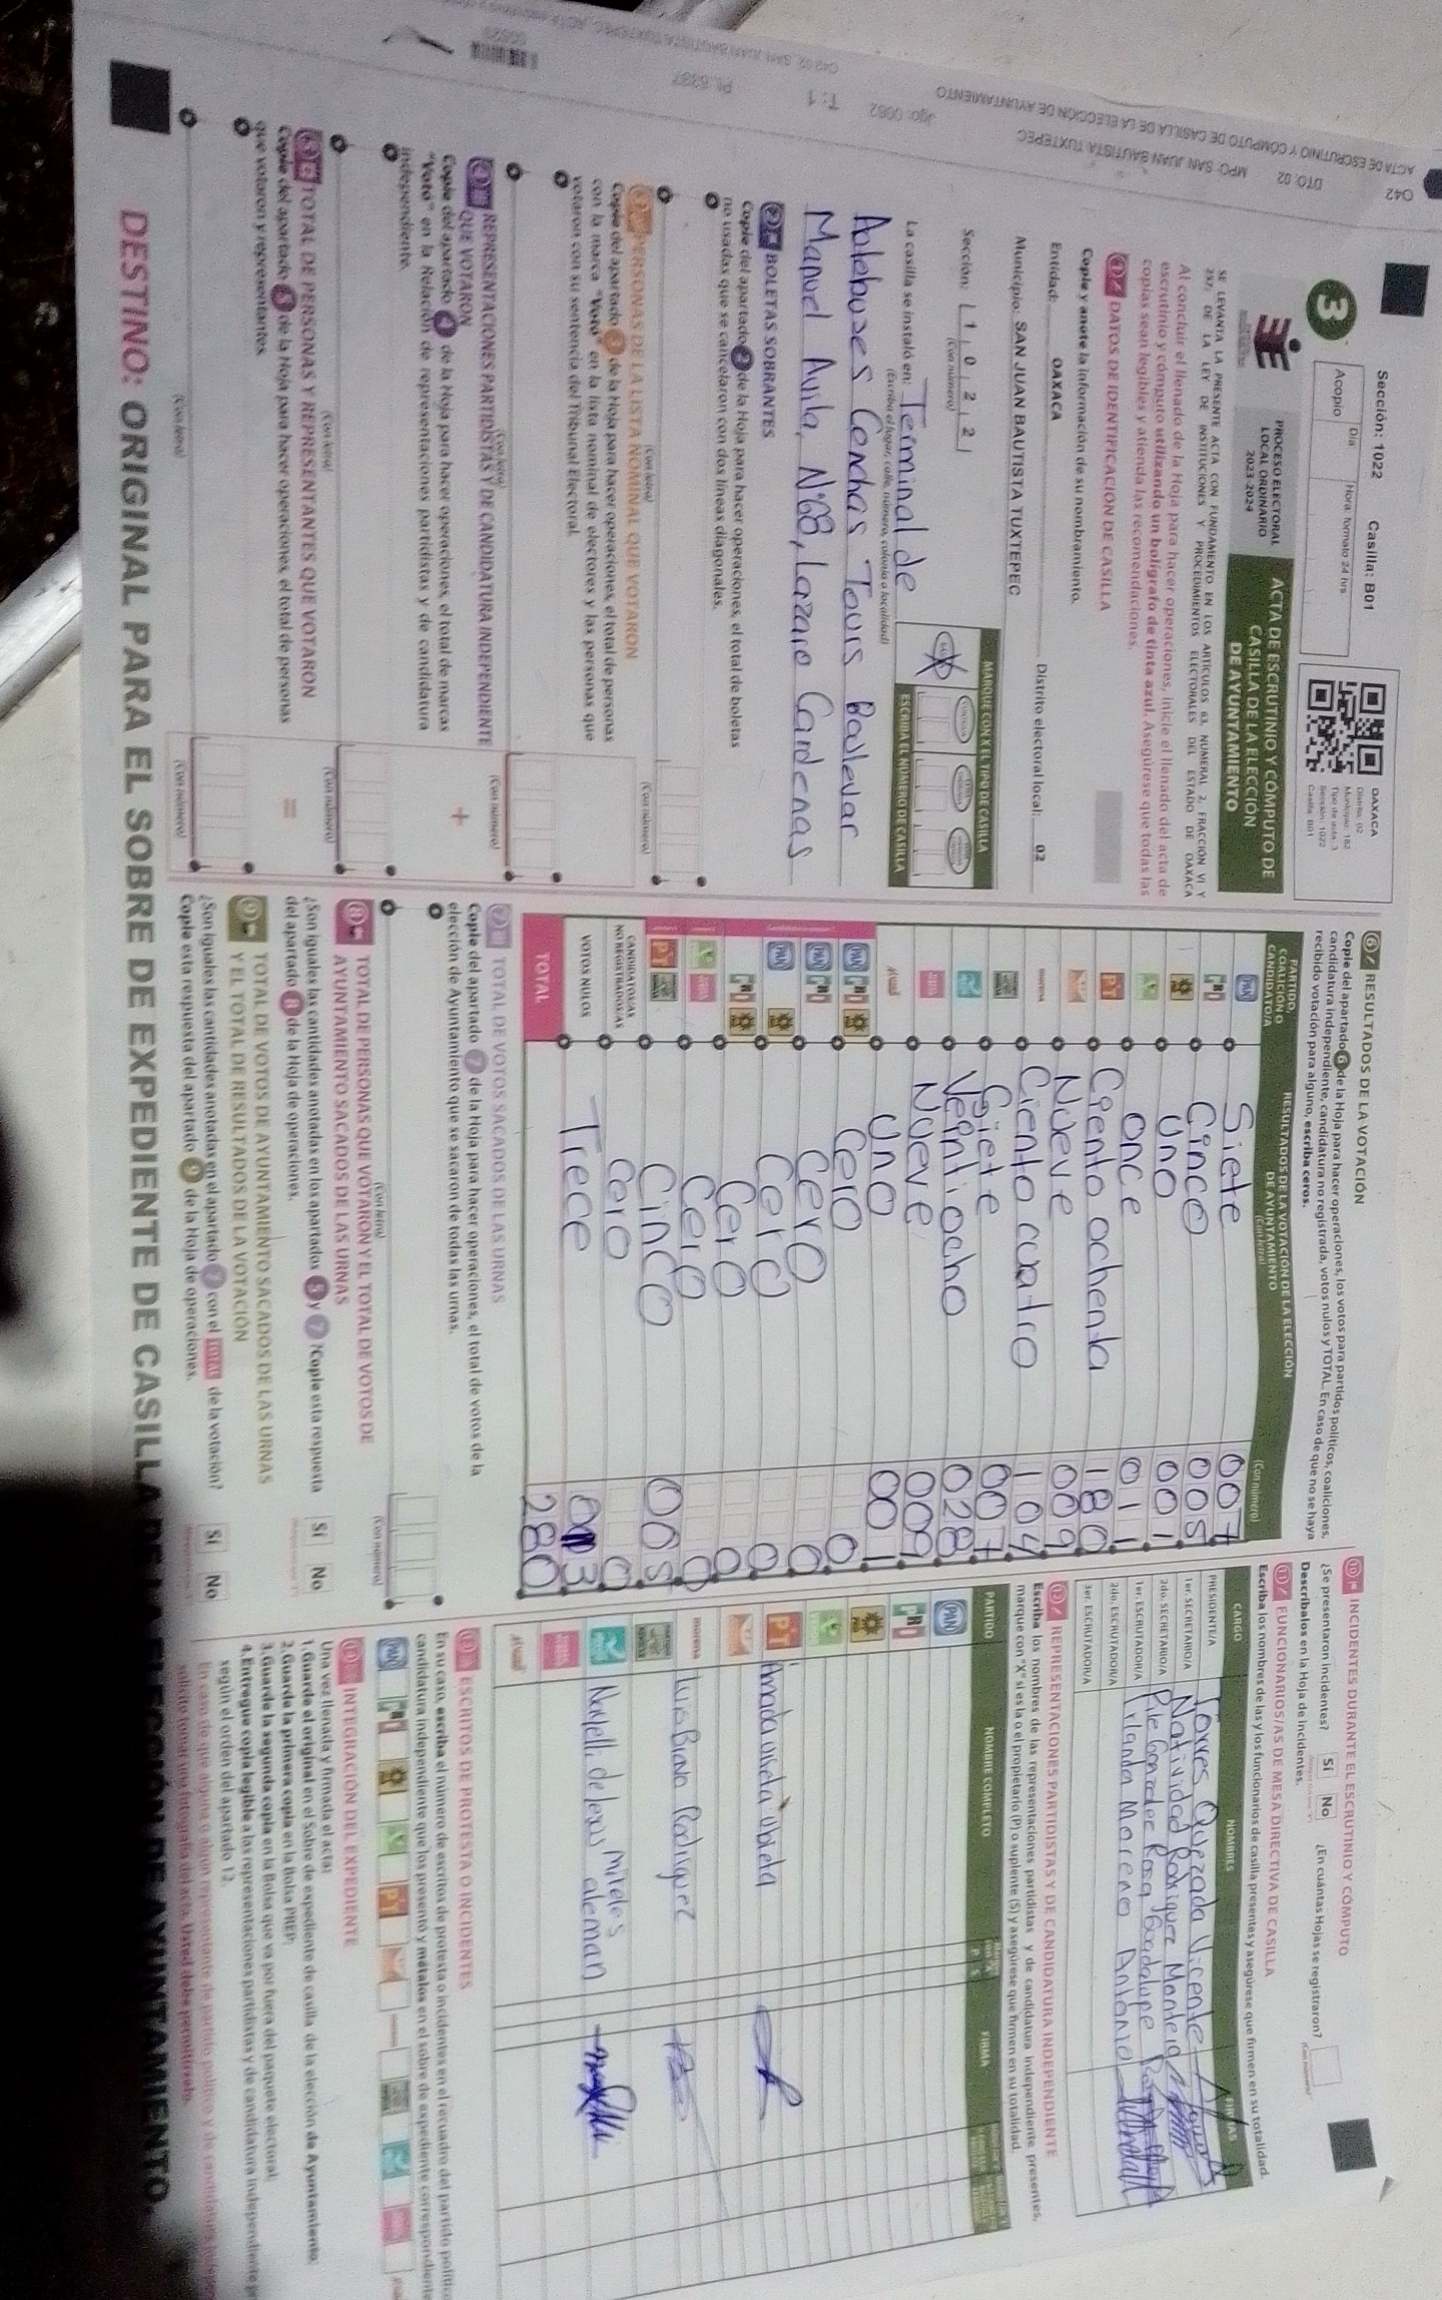 Sección: 1022 Casilla: B01
Día Hora: formato 24 hrs
Acopio
3
OAXACA
Distrito: 02
Municipio: 182
Tipo de acta: 3
Sección: 1022
Casilla: B01
PROCESO ELECTORAL
LOCAL ORDINARIO
2023-2024
ACTA DE ESCRUTINIO Y CÓMPUTO DE
CASILLA DE LA ELECCIÓN
DE AYUNTAMIENTO
SE LEVANTA LA PRESENTE ACTA CON FUNDAMENTO EN LOS ARTÍCULOS 63, NUMERAL 2, FRACCIÓN VI Y
257, DE LA LEY DE INSTITUCIONES Y PROCEDIMIENTOS ELECTORALES DEL ESTADO DE OAXACA
Al concluir el llenado de la Hoja para hacer operaciones, inicie el llenado del acta de
escrutinio y cómputo utilizando un bolígrafo de tinta azul. Asegúrese que todas las
copias sean legibles y atienda las recomendaciones.
1 DATOS DE IDENTIFICACIÓN DE CASILLA
Copie y anote la información de su nombramiento.
Entidad: OAXACA Distrito electoral local: 02
Municipio: SAN JUAN BAUTISTA TUXTEPEC
Sección: 1 0 2 2
(Con número)
MARQUE CON X EL TIPO DE CASILLA
ESCRIBA EL NÚMERO DE CASILLA
La casilla se instaló en: Terminal de
(Escriba el lugar, calle, número, colonia o localidad)
Autobuses Conchas Tours Boulevar
Manuel Avila, N°68, Lazaro Cardenas
2 BOLETAS SOBRANTES
Copie del apartado 2 de la Hoja para hacer operaciones, el total de boletas
no usadas que se cancelaron con dos líneas diagonales.
(Con letra) (Con número)
3 PERSONAS DE LA LISTA NOMINAL QUE VOTARON
Copie del apartado 3 de la Hoja para hacer operaciones, el total de personas
con la marca "Votó" en la lista nominal de electores y las personas que
votaron con su sentencia del Tribunal Electoral.
(Con letra) (Con número)
4 REPRESENTACIONES PARTIDISTAS Y DE CANDIDATURA INDEPENDIENTE
QUE VOTARON
Copie del apartado 4 de la Hoja para hacer operaciones, el total de marcas
"Votó" en la Relación de representaciones partidistas y de candidatura
independiente.
+
(Con letra) (Con número)
5 TOTAL DE PERSONAS Y REPRESENTANTES QUE VOTARON
Copie del apartado 5 de la Hoja para hacer operaciones, el total de personas
que votaron y representantes.
=
(Con letra) (Con número)
6 RESULTADOS DE LA VOTACIÓN
Copie del apartado 6 de la Hoja para hacer operaciones, los votos para partidos políticos, coaliciones,
candidatura independiente, candidatura no registrada, votos nulos y TOTAL. En caso de que no se haya
recibido votación para alguno, escriba ceros.
PARTIDO,
COALICIÓN O
CANDIDATO/A
RESULTADOS DE LA VOTACIÓN DE LA ELECCIÓN
DE AYUNTAMIENTO
(Con letra) (Con número)
PAN Siete 007
PRI Cinco 005
Uno 001
once 011
PT Ciento ochenta 180
Nueve 009
morena Ciento cuatro 104
Siete 007
Veintiocho 028
Nueve 009
Uno 001
PAN PRI Cero 0
PAN PRI Cero 0
PAN Cero 0
PRI Cero 0
Cero 0
PT Cinco 005
CANDIDATOS/AS
NO REGISTRADOS/AS Cero 0
VOTOS NULOS Trece 013
TOTAL 280
7 TOTAL DE VOTOS SACADOS DE LAS URNAS
Copie del apartado 7 de la Hoja para hacer operaciones, el total de votos de la
elección de Ayuntamiento que se sacaron de todas las urnas.
(Con letra) (Con número)
8 TOTAL DE PERSONAS QUE VOTARON Y EL TOTAL DE VOTOS DE
AYUNTAMIENTO SACADOS DE LAS URNAS
¿Son iguales las cantidades anotadas en los apartados 5 y 7? Copie esta respuesta
del apartado 8 de la Hoja de operaciones. Sí No
9 TOTAL DE VOTOS DE AYUNTAMIENTO SACADOS DE LAS URNAS
Y EL TOTAL DE RESULTADOS DE LA VOTACIÓN
¿Son iguales las cantidades anotadas en el apartado 7 con el TOTAL de la votación?
Copie esta respuesta del apartado 9 de la Hoja de operaciones. Sí No
10 INCIDENTES DURANTE EL ESCRUTINIO Y CÓMPUTO
¿Se presentaron incidentes? Sí No ¿En cuántas Hojas se registraron?
Descríbalos en la Hoja de incidentes.
11 FUNCIONARIOS/AS DE MESA DIRECTIVA DE CASILLA
Escriba los nombres de las y los funcionarios de casilla presentes y asegúrese que firmen en su totalidad.
CARGO NOMBRES FIRMAS
PRESIDENTE/A Torres Quezada Vicente
1er. SECRETARIO/A Natividad Rodriguez
2do. SECRETARIO/A Guadalupe
1er. ESCRUTADOR/A Arlanda Moreno Antonio
2do. ESCRUTADOR/A
3er. ESCRUTADOR/A
12 REPRESENTACIONES PARTIDISTAS Y DE CANDIDATURA INDEPENDIENTE
Escriba los nombres de las representaciones partidistas y de candidatura independiente presentes,
marque con "X" si es la o el propietario (P) o suplente (S) y asegúrese que firmen en su totalidad.
PARTIDO NOMBRE COMPLETO FIRMA
PAN
PRI
PT Amada Ubieda
morena Luis Bravo Rodriguez
Nayelli de Jesus Mireles aleman
13 ESCRITOS DE PROTESTA O INCIDENTES
En su caso, escriba el número de escritos de protesta o incidentes en el recuadro del partido político
candidatura independiente que los presentó y métalos en el sobre de expediente correspondiente
14 INTEGRACIÓN DEL EXPEDIENTE
Una vez llenada y firmada el acta:
1. Guarde el original en el Sobre de expediente de casilla de la elección de Ayuntamiento.
2. Guarde la primera copia en la Bolsa PREP.
3. Guarde la segunda copia en la Bolsa que va por fuera del paquete electoral.
4. Entregue copia legible a las representaciones partidistas y de candidatura independiente
según el orden del apartado 12.
DESTINO: ORIGINAL PARA EL SOBRE DE EXPEDIENTE DE CASILLA DE LA ELECCIÓN DE AYUNTAMIENTO.
042
ACTA DE ESCRUTINIO Y CÓMPUTO DE CASILLA DE LA ELECCIÓN DE AYUNTAMIENTO
DTO: 02 MPO: SAN JUAN BAUTISTA TUXTEPEC
Jgo: 0062 T: 1